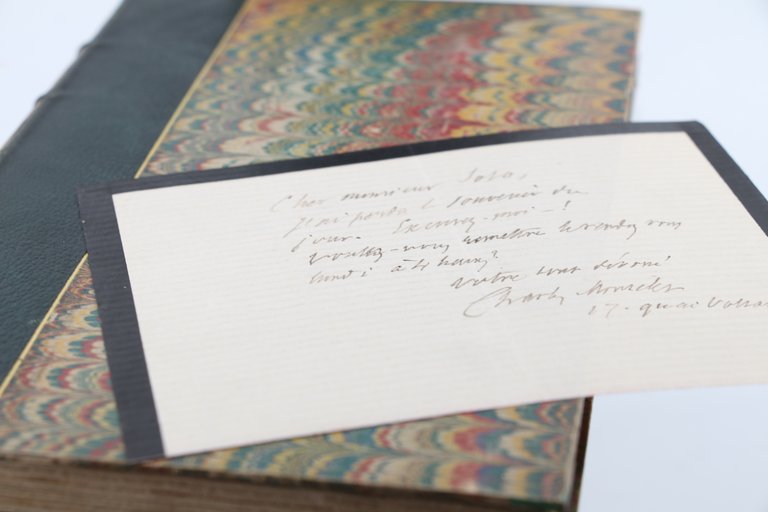 Cher monsieur
j'ai perdu le souvenir du
jour. Excusez-moi - !
Voulez-vous remettre le rendez vous
lundi à 4 heures?
Votre tout dévoué
Charles Monselet
17. quai Voltai